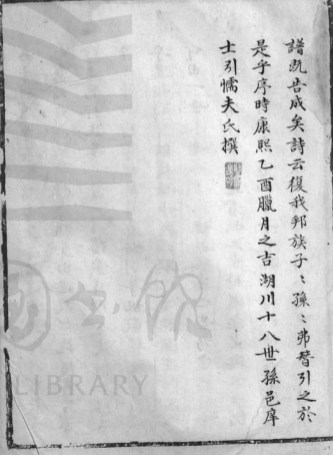 譜既告成矣詩云復我邦族子〻孫〻弗替引之於
是乎序時康熙乙酉臘月之吉湖川十八世孫邑庠
士引懦夫氏撰
國書館
LIBRARY